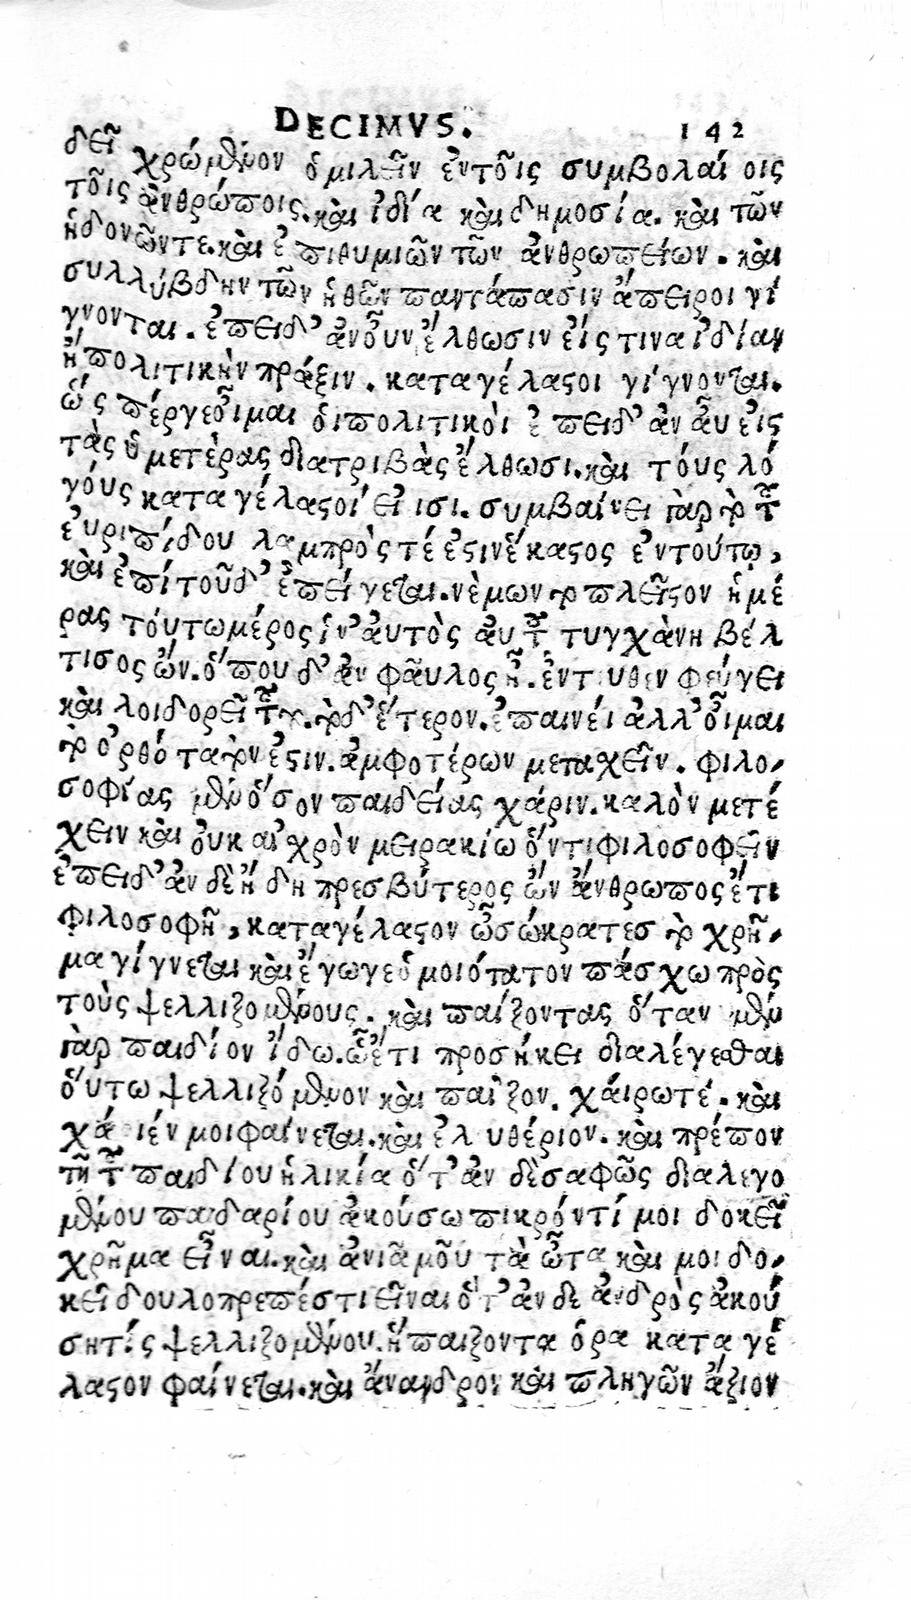 DECIMVS. 142
δεῖ χρώμενον ὁμιλεῖν ἐντοῖς συμβολαί οις
τοῖς ἀνθρώποις. καὶ ἰδία καὶ δημοσία. καὶ τῶν
ἡδονῶντε. καὶ ἐπιθυμιῶν τῶν ἀνθρωπείων. καὶ
συλλύβδην τῶν ἠθῶν παντάπασιν ἄπειροι γί
γνονται. ἐπειδ' ἀνοῦν ἔλθωσιν εἰς τινα ἰδίαν
ἤ πολιτικὴν πράξιν. καταγέλαςοι γίγνονται.
ὥς πέργεοἶμαι ὁιπολιτικὸι ἐ πειδ' ἀν ἀυ εἰς
τὰς ὑμετὲρας διατριβὰς ἔλθωσι. καὶ τόυς λό
γόυς καταγέλαςοί εἰ ισι. συμβαίνει γὰρ τὸ τ͂
ἐυριπίδου λαμπρὸς τέ ἐςινἕκαςος ἐντούτῳ,
καὶ ἐπίτοῦδ' ἐπείγεται. νὲμων τὸ πλεῖςον ἡμέ
ρας τόυτωμέρος ἱν' ἀυτὸς ἀυ τ͂, τυγχὰνη βέλ
τισος ὤν. ὅπου δ' ἀν φᾶυλος ἦ. φεύγει
καὶ λοιδορεῖ τὸδ' ἕτερον. ἐπαινέι ἀλλ' οἶμαι
τὸ ὀρθό τατὸνἐςιν. ἀμφοτέρων μεταχεῖν. φιλο-
σοφίας μὲν ὅσον παιδείας χάριν. καλὸν μετέ
χειν καὶ ὀυκ αἰχρὸν μειρακίω ὄντιφιλοσοφεῖν
ἐπειδ' ἀν δὲἤ δη πρεσβύτερος ὤν ἄνθρωπος ἔτι
φιλοσοφῆ, καταγέλαςον ὦσώκρατεσ τὸ χρῆ-
μα γίγνεται καὶ ἔγωγεὁ μοιότατον πάσχω πρὸς
τοὺς ψελλιζομένους. καὶ παίζοντας ὅταν μὲν
γὰρ παιδίον ἴδω. ὧἔτι προσήκει διαλέγεσθαι
ὅυτω ψελλιζόμενον καὶ παῖζον. χάιρωτέ. καὶ
χά ιέν μοιφαίνεται. καὶ ἐλ υθέριον. καὶ πρέπον
τῆ τ͂ παιδίου ἡλικία ὅτ' ἀν δὲσαφῶς διαλεγο
μένου παιδαρίου ἀκούσω πικρόντί μοι δοκεῖ
χρῆμα εἶναι. καὶ ἀνιᾶ μοῦ τὰ ὦτα καὶ μοι δο-
κεῖ δουλοπρεπέστιεῖναι ὅτ' ἀν δε ἀνδρὸς ἀκού
σητίς ψελλιζομένου. ἤ παιζοντα ὁρα κατα γέ
λαςον φαίνεται. καὶ ἄνανδρον καὶ πληγῶν ἄξιον